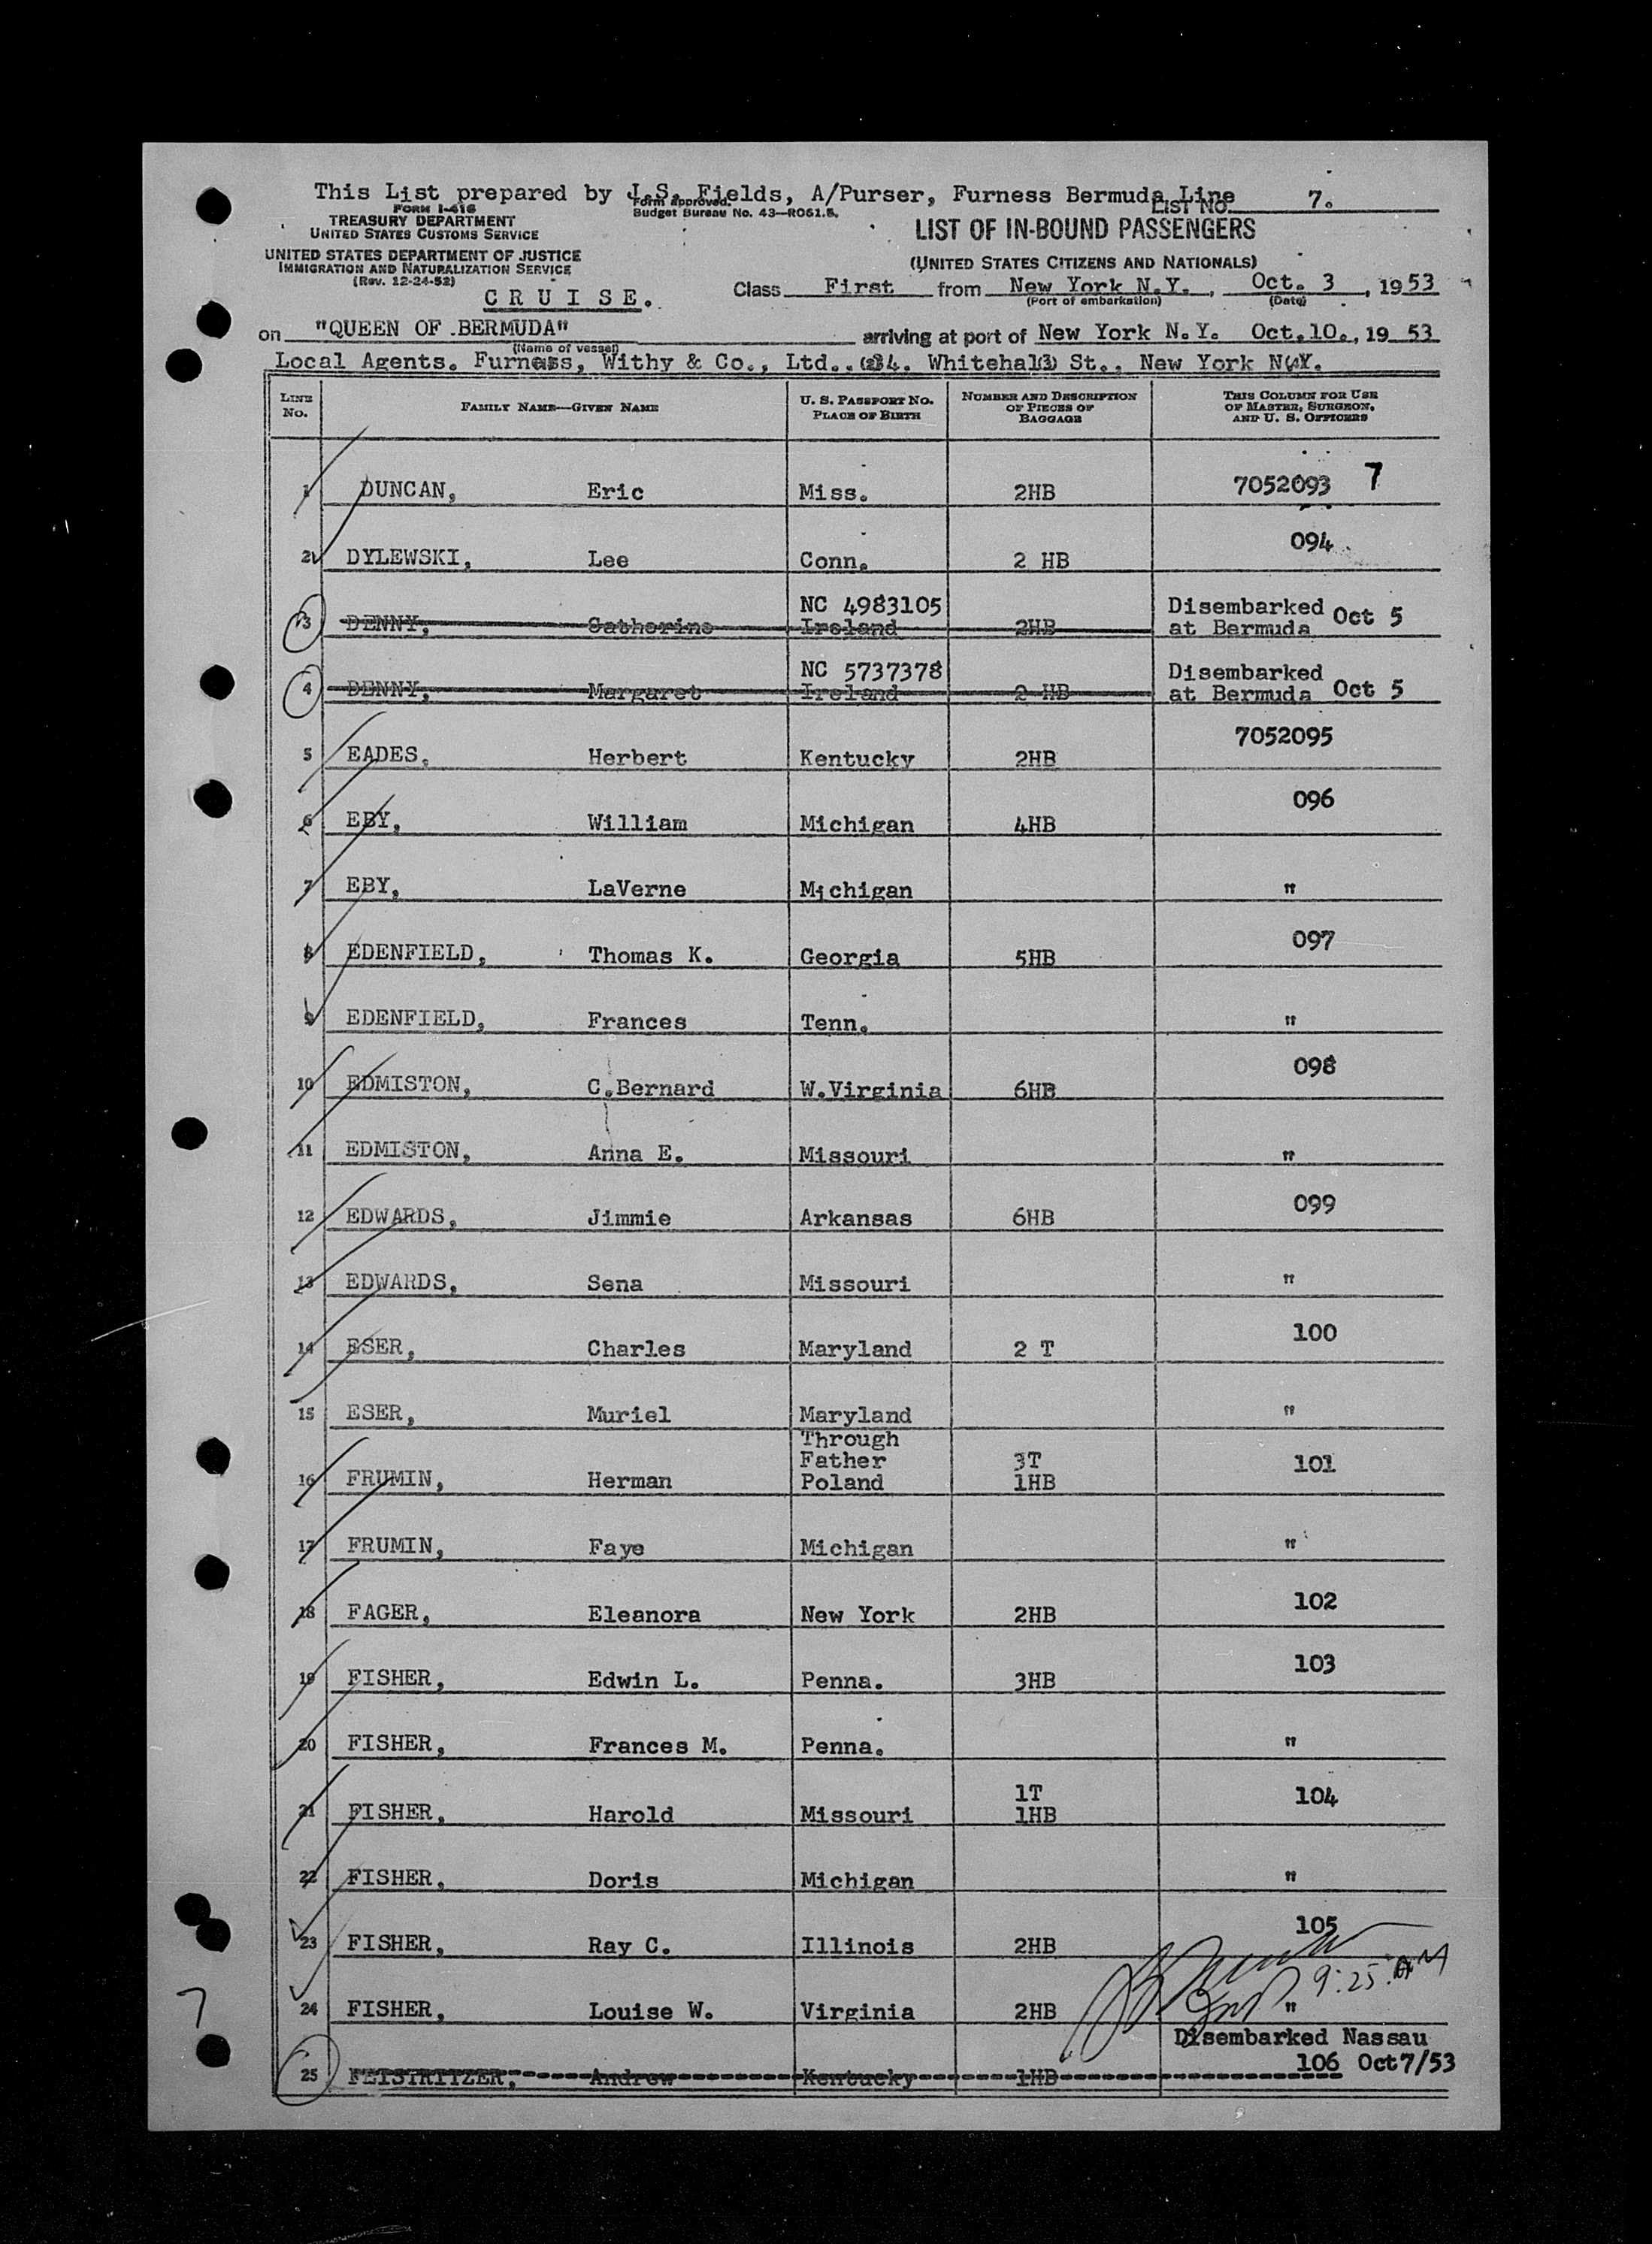 This List prepared by J.S. Fields, A/Purser, Furness Bermuda Line
LIST NO. 7.
FORM I-416
TREASURY DEPARTMENT
UNITED STATES CUSTOMS SERVICE
Form approved.
Budget Bureau No. 43—RO61.5.
LIST OF IN-BOUND PASSENGERS
UNITED STATES DEPARTMENT OF JUSTICE
IMMIGRATION AND NATURALIZATION SERVICE
(Rev. 12-24-52)
(UNITED STATES CITIZENS AND NATIONALS)
CRUISE.
Class First from New York N.Y., Oct. 3, 1953
(Port of embarkation) (Date)
on "QUEEN OF BERMUDA" arriving at port of New York N.Y. Oct.10., 1953
(Name of vessel)
Local Agents. Furness, Withy & Co., Ltd.. 34. Whitehall St., New York N.Y.
LINE NO. FAMILY NAME—GIVEN NAME U. S. PASSPORT NO. PLACE OF BIRTH NUMBER AND DESCRIPTION OF PIECES OF BAGGAGE THIS COLUMN FOR USE OF MASTER, SURGEON, AND U. S. OFFICERS
1 DUNCAN, Eric Miss. 2HB 7052093 7
2 DYLEWSKI, Lee Conn. 2 HB 094
3 DENNY, Catherine NC 4983105 Ireland 2HB Disembarked at Bermuda Oct 5
4 DENNY, Margaret NC 5737378 Ireland 2 HB Disembarked at Bermuda Oct 5
5 EADES, Herbert Kentucky 2HB 7052095
6 EBY, William Michigan 4HB 096
7 EBY, LaVerne Michigan "
8 EDENFIELD, Thomas K. Georgia 5HB 097
9 EDENFIELD, Frances Tenn. "
10 EDMISTON, C.Bernard W.Virginia 6HB 098
11 EDMISTON, Anna E. Missouri "
12 EDWARDS, Jimmie Arkansas 6HB 099
13 EDWARDS, Sena Missouri "
14 ESER, Charles Maryland 2 T 100
15 ESER, Muriel Maryland "
16 FRUMIN, Herman Through Father Poland 3T 1HB 101
17 FRUMIN, Faye Michigan "
18 FAGER, Eleanora New York 2HB 102
19 FISHER, Edwin L. Penna. 3HB 103
20 FISHER, Frances M. Penna. "
21 FISHER, Harold Missouri 1T 1HB 104
22 FISHER, Doris Michigan "
23 FISHER, Ray C. Illinois 2HB 105
9:25 AM
24 FISHER, Louise W. Virginia 2HB "
7
Disembarked Nassau
25 FEISTRITZER, Andrew Kentucky 1HB 106 Oct7/53